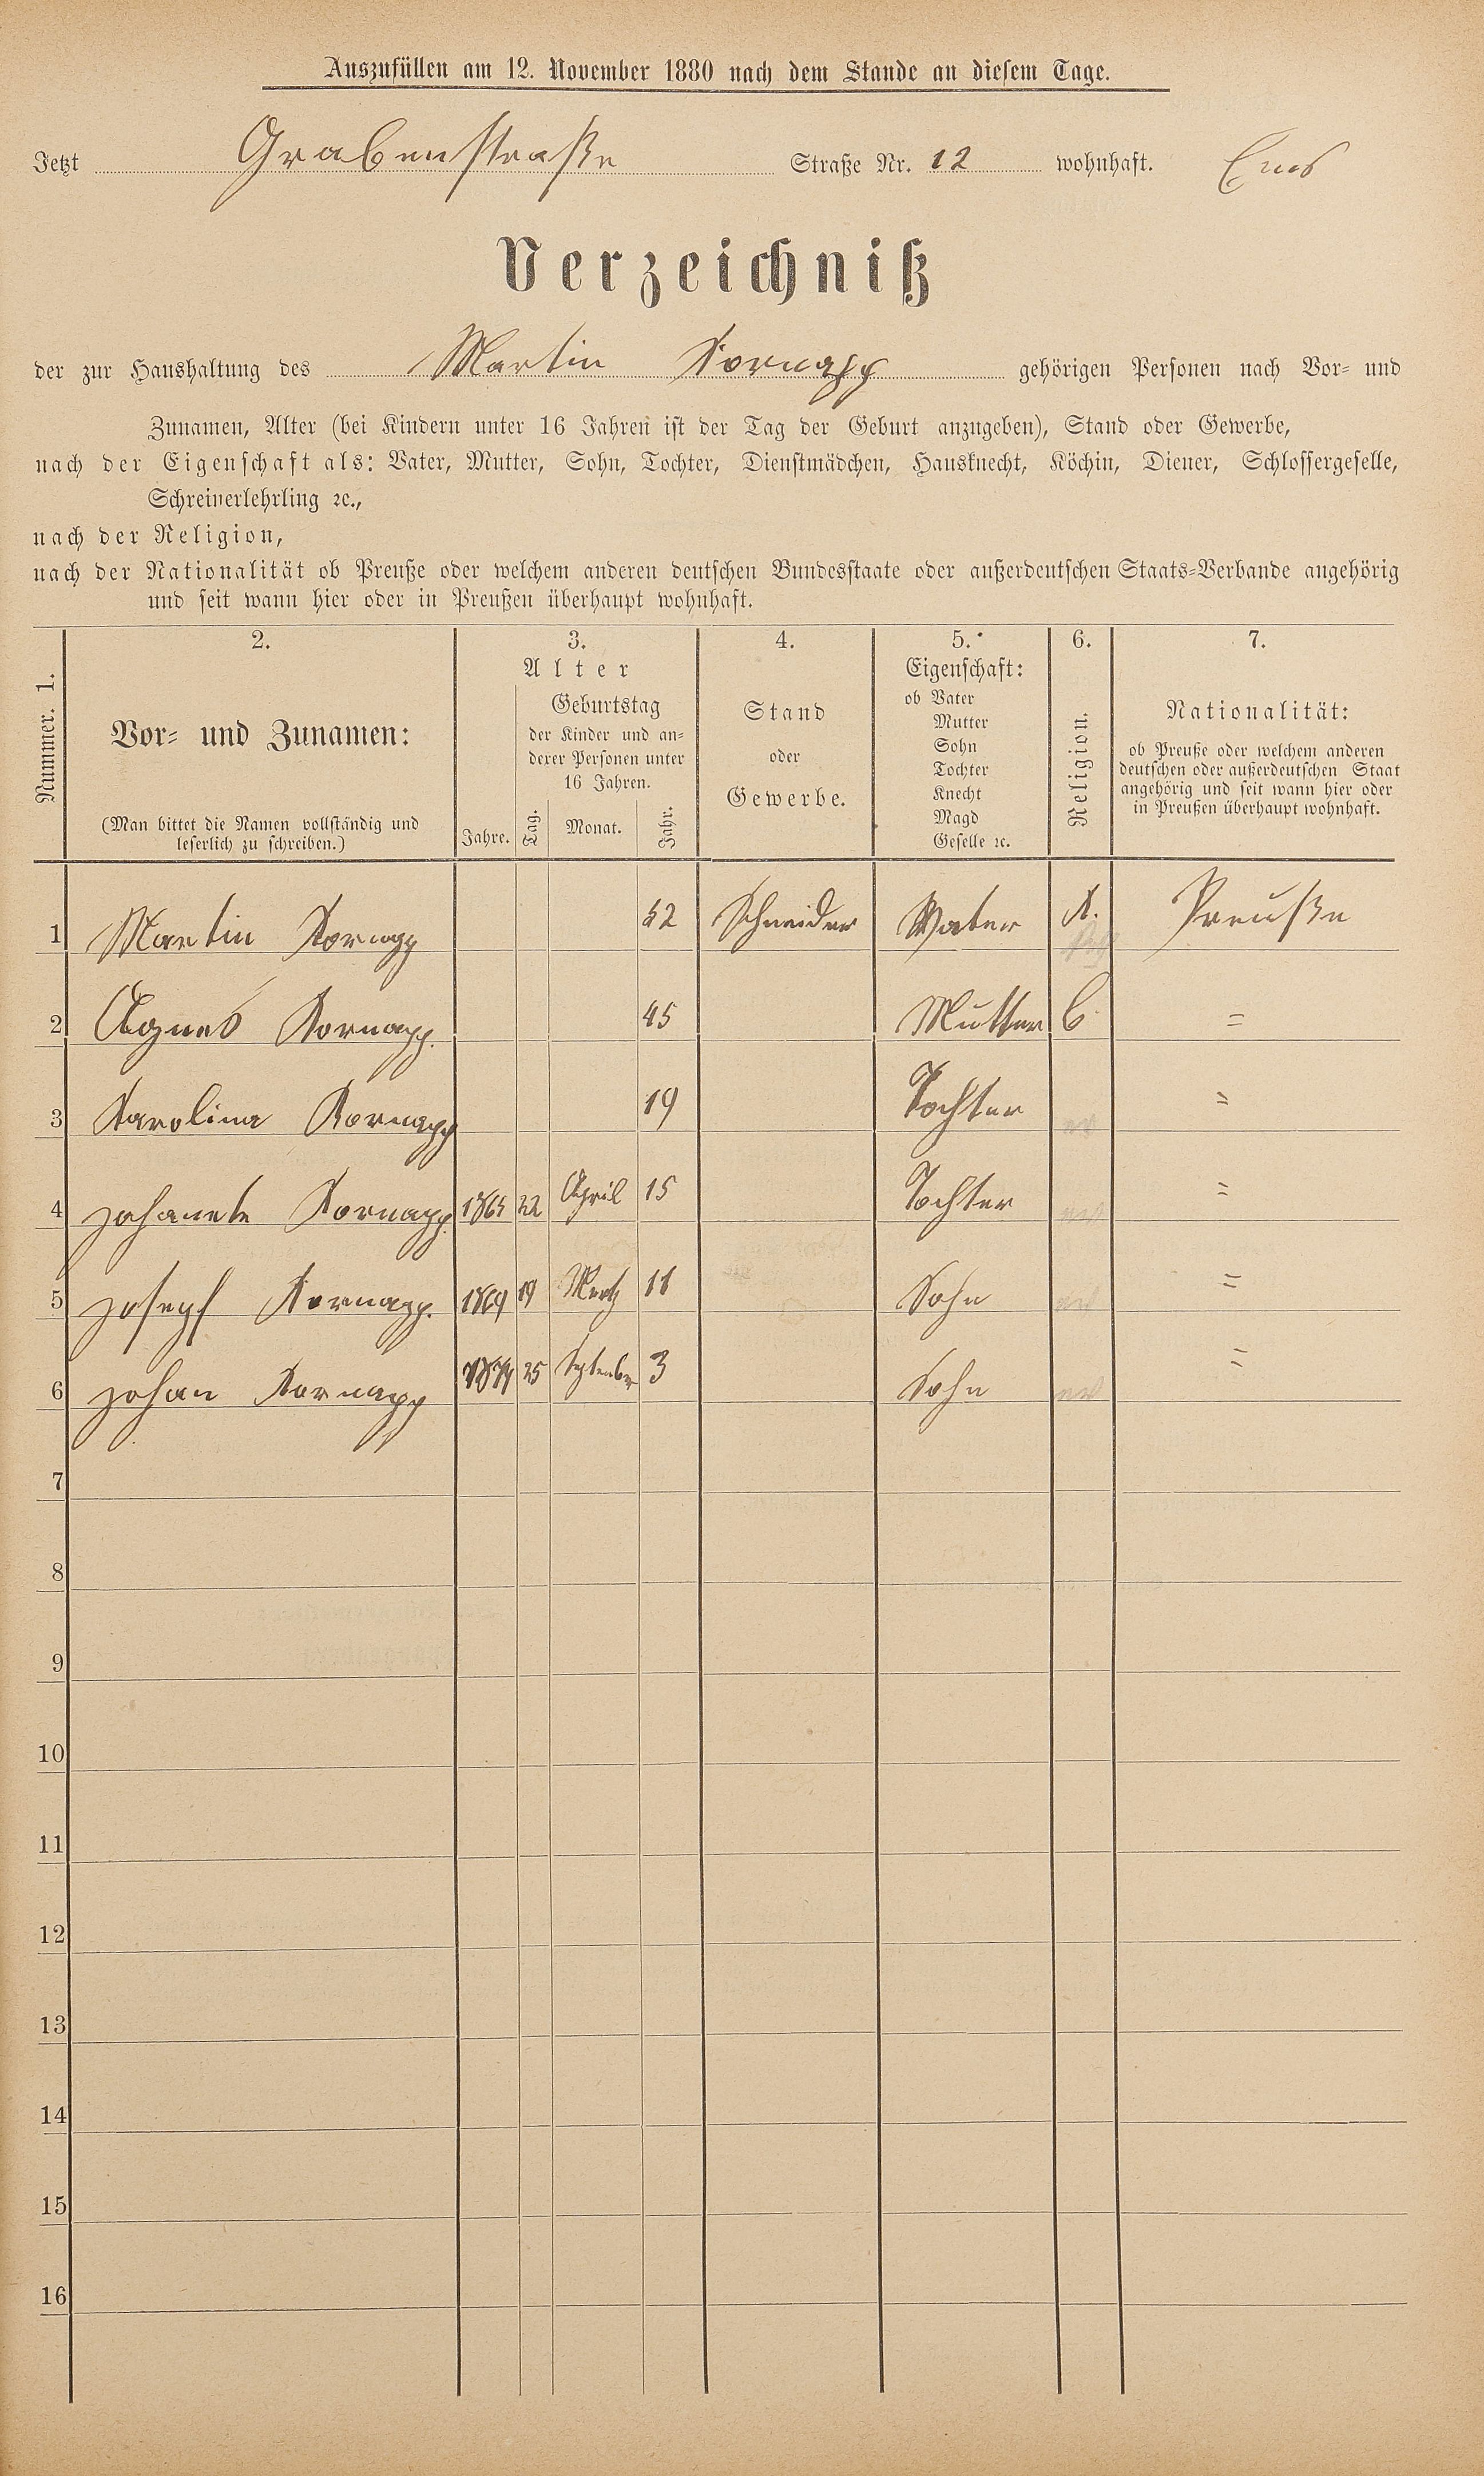 Auszufüllen am 12. November 1880 nach dem Stande an diesem Tage.
Jetzt Grabenstraße Straße Nr. 12 wohnhaft. Ems
Verzeichniß
der zur Haushaltung des Martin Kornapp gehörigen Personen nach Vor- und
Zunamen, Alter (bei Kindern unter 16 Jahren ist der Tag der Geburt anzugeben), Stand oder Gewerbe,
nach der Eigenschaft als: Vater, Mutter, Sohn, Tochter, Dienstmädchen, Hausknecht, Köchin, Diener, Schlossergeselle,
Schreinerlehrling ꝛc.,
nach der Religion,
nach der Nationalität ob Preuße oder welchem anderen deutschen Bundesstaate oder außerdeutschen Staats-Verbande angehörig
und seit wann hier oder in Preußen überhaupt wohnhaft.
Nummer. 1.
2.
Vor- und Zunamen:
(Man bittet die Namen vollständig und
leserlich zu schreiben.)
3.
Alter
Geburtstag
der Kinder und an-
derer Personen unter
16 Jahren.
Jahre. Tag. Monat. Jahr.
4.
Stand
oder
Gewerbe.
5.
Eigenschaft:
ob Vater
Mutter
Sohn
Tochter
Knecht
Magd
Geselle ꝛc.
6.
Religion.
7.
Nationalität:
ob Preuße oder welchem anderen
deutschen oder außerdeutschen Staat
angehörig und seit wann hier oder
in Preußen überhaupt wohnhaft.
1 Martin Kornapp 52 Schneider Vater K. Preuße
2 Agnes Kornapp. 45 Mutter =
3 Karolina Kornapp 19 Tochter =
4 Johanete Kornapp. 1865 22 April 15 Tochter =
5 Joseph Kornapp. 1869 19 Mertz 11 Sohn =
6 Johan Kornapp 25 September 3 Sohn =
7
8
9
10
11
12
13
14
15
16